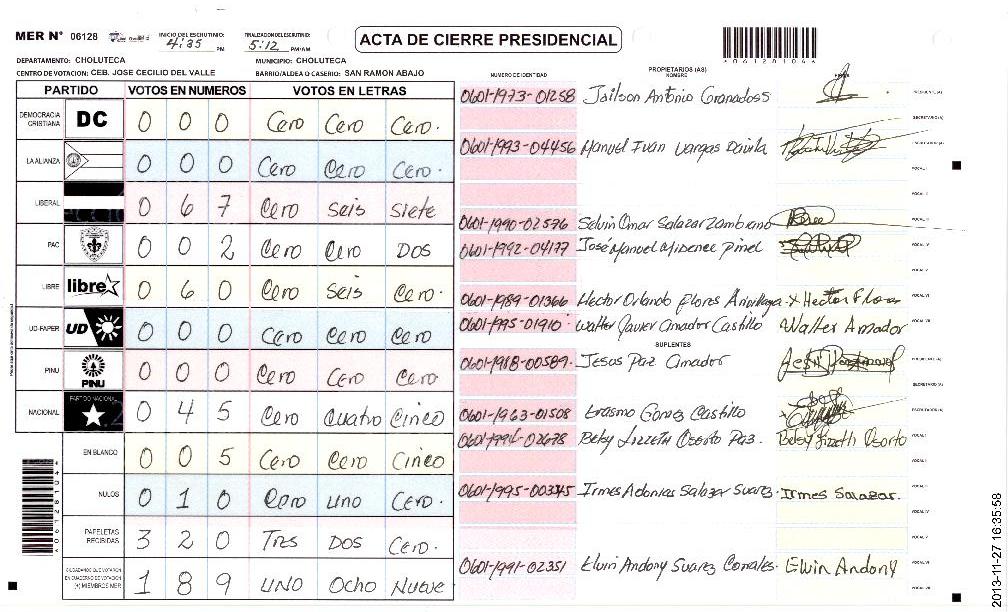 MER Nº 06128
INICIO DEL ESCRUTINIO: 4:35 PM
FINALIZACION DEL ESCRUTINIO: 5:12 PM/AM
ACTA DE CIERRE PRESIDENCIAL
DEPARTAMENTO: CHOLUTECA MUNICIPIO: CHOLUTECA
CENTRO DE VOTACION: CEB. JOSE CECILIO DEL VALLE BARRIO/ALDEA O CASERIO: SAN RAMON ABAJO
PARTIDO VOTOS EN NUMEROS VOTOS EN LETRAS
DEMOCRACIA CRISTIANA DC 0 0 0 Cero Cero Cero.
LA ALIANZA 0 0 0 Cero Cero Cero.
LIBERAL 0 6 7 Cero Seis Siete
PAC 0 0 2 Cero Cero DOS
LIBRE libre 0 6 0 Cero Seis Cero.
UD-FAPER UD 0 0 0 Cero Cero Cero
PINU PINU 0 0 0 Cero Cero Cero
NACIONAL PARTIDO NACIONAL 0 4 5 Cero Cuatro Cinco
EN BLANCO 0 0 5 Cero Cero Cinco
NULOS 0 1 0 Cero Uno Cero.
PAPELETAS RECIBIDAS 3 2 0 Tres DOS Cero.
CIUDADANOS QUE VOTARON EN CUADERNO DE VOTACION (+) MIEMBROS MER 1 8 9 UNO Ocho Nueve
NUMERO DE IDENTIDAD PROPIETARIOS (AS) NOMBRE
0601-1973-01258 Jailson Antonio Granadoss
0601-1993-04456 Manuel Ivan Vargas Davila
0601-1990-02576 Selvin Omar Salazar Zambrano
0601-1992-04177 José Manuel Pinel
0601-1989-01366 Hector Orlando Flores Hector Flores
0601-1995-01910 Walter Javier Amador Castillo Walter Amador
SUPLENTES
0601-1988-00589. Jesus Paz Amador
0601-1963-01508 Erasmo Gomez Castillo
02678 Betsy Lizzeth Osorto Paz. Betsy Lizeth Osorto
0601-1995-00345 Irmes Adonias Salazar Suarez. Irmes Salazar.
0601-1991-02351 Elvin Andony Suarez Corrales Elvin Andony
*061281046*
2013-11-27 16:35:58